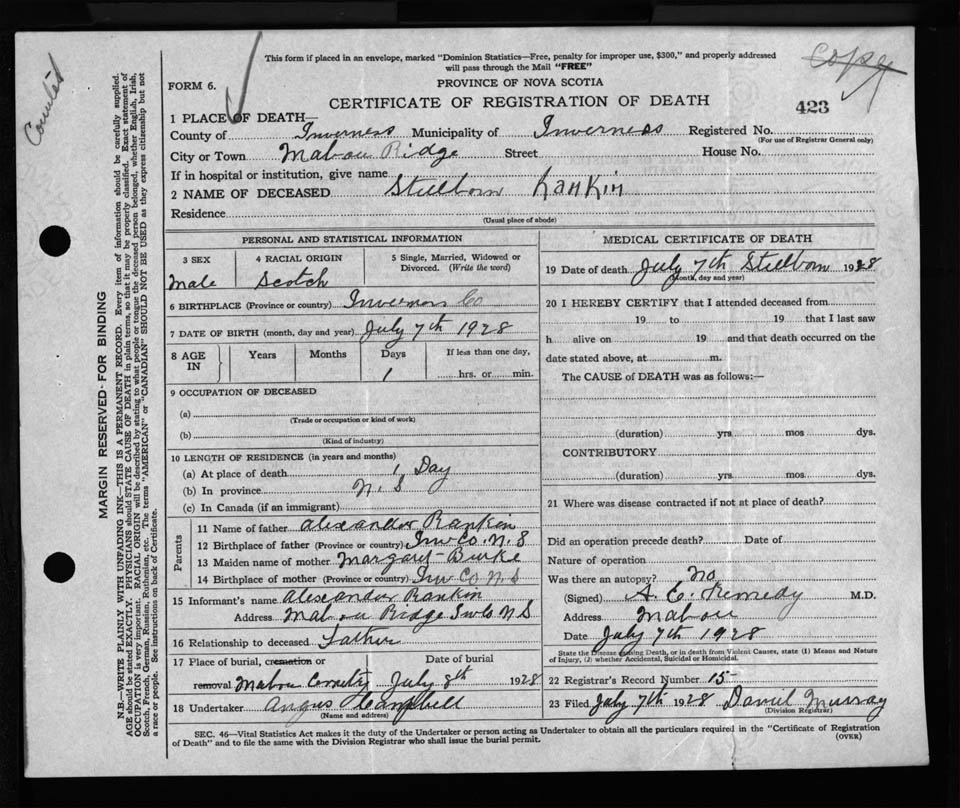 This form if placed in an envelope, marked "Dominion Statistics—Free, penalty for improper use, $300," and properly addressed
will pass through the Mail "FREE"
copy
Counted
FORM 6.
PROVINCE OF NOVA SCOTIA
CERTIFICATE OF REGISTRATION OF DEATH
423
1 PLACE OF DEATH—
County of Inverness Municipality of Inverness Registered No.
(For use of Registrar General only)
City or Town Mabou Ridge Street House No.
If in hospital or institution, give name
2 NAME OF DECEASED Stillborn Rankin
Residence
(Usual place of abode)
MARGIN RESERVED FOR BINDING
N.B.—WRITE PLAINLY WITH UNFADING INK—THIS IS A PERMANENT RECORD. Every item of information should be carefully supplied.
AGE should be stated EXACTLY. PHYSICIANS should STATE CAUSE OF DEATH in plain terms, so that it may be properly classified. Exact statement of
OCCUPATION is very important. RACIAL ORIGIN will be described by stating to what people or tongue the deceased person belonged, whether English, Irish,
Scotch, French, German, Russian, Ruthenian, etc. The terms "AMERICAN" or "CANADIAN" SHOULD NOT BE USED as they express citizenship but not
a race or people. See instructions on back of Certificate.
PERSONAL AND STATISTICAL INFORMATION
3 SEX
4 RACIAL ORIGIN
5 Single, Married, Widowed or
Divorced. (Write the word)
Male
Scotch
6 BIRTHPLACE (Province or country) Inverness Co
7 DATE OF BIRTH (month, day and year) July 7th 1928
8 AGE
IN
Years
Months
Days
1
If less than one day,
hrs. or min.
9 OCCUPATION OF DECEASED
(a)
(Trade or occupation or kind of work)
(b)
(Kind of industry)
10 LENGTH OF RESIDENCE (in years and months)
(a) At place of death 1 Day
(b) In province N.S
(c) In Canada (if an immigrant)
Parents
11 Name of father Alexander Rankin
12 Birthplace of father (Province or country) Inv Co. N.S
13 Maiden name of mother Margaret Burke
14 Birthplace of mother (Province or country) Inv Co N.S
15 Informant's name Alexander Rankin
Address Mabou Ridge Inv Co N.S
16 Relationship to deceased Father
17 Place of burial, cremation or
removal Mabou
Date of burial
July 8th 1928
18 Undertaker Angus Campbell
(Name and address)
MEDICAL CERTIFICATE OF DEATH
19 Date of death July 7th Stillborn 1928
(Month, day and year)
20 I HEREBY CERTIFY that I attended deceased from
19 to 19 that I last saw
h alive on 19 and that death occurred on the
date stated above, at m.
The CAUSE of DEATH was as follows:—
(duration) yrs mos dys.
CONTRIBUTORY
(duration) yrs. mos. dys.
21 Where was disease contracted if not at place of death?
Did an operation precede death? Date of
Nature of operation
Was there an autopsy? No
(Signed) M.D.
Address Mabou
Date July 7th 1928
State the Disease causing Death, or in death from Violent Causes, state (1) Means and Nature
of Injury, (2) whether Accidental, Suicidal or Homicidal.
22 Registrar's Record Number 15
23 Filed July 7th 1928 Daniel Murray
(Division Registrar)
SEC. 46—Vital Statistics Act makes it the duty of the Undertaker or person acting as Undertaker to obtain all the particulars required in the "Certificate of Registration
of Death" and to file the same with the Division Registrar who shall issue the burial permit.
(OVER)